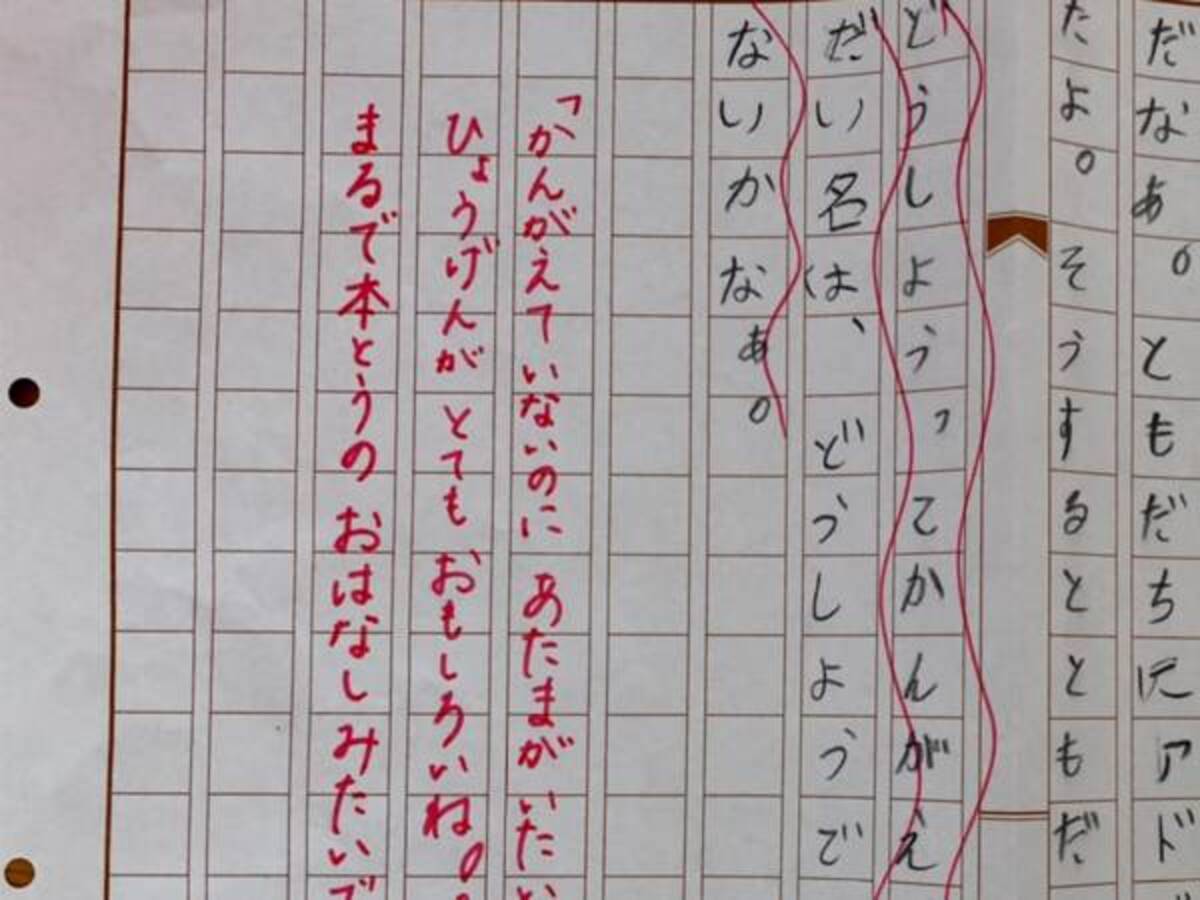 だなあ。ともだちにアド
たよ。そうするとともだ
どうしようってかんがえ
だい名は、どうしようで
ないかなぁ。
「かんがえていないのに あたまが いたい
ひょうげんが とても おもしろいね。
まるで本とうの おはなしみたいで